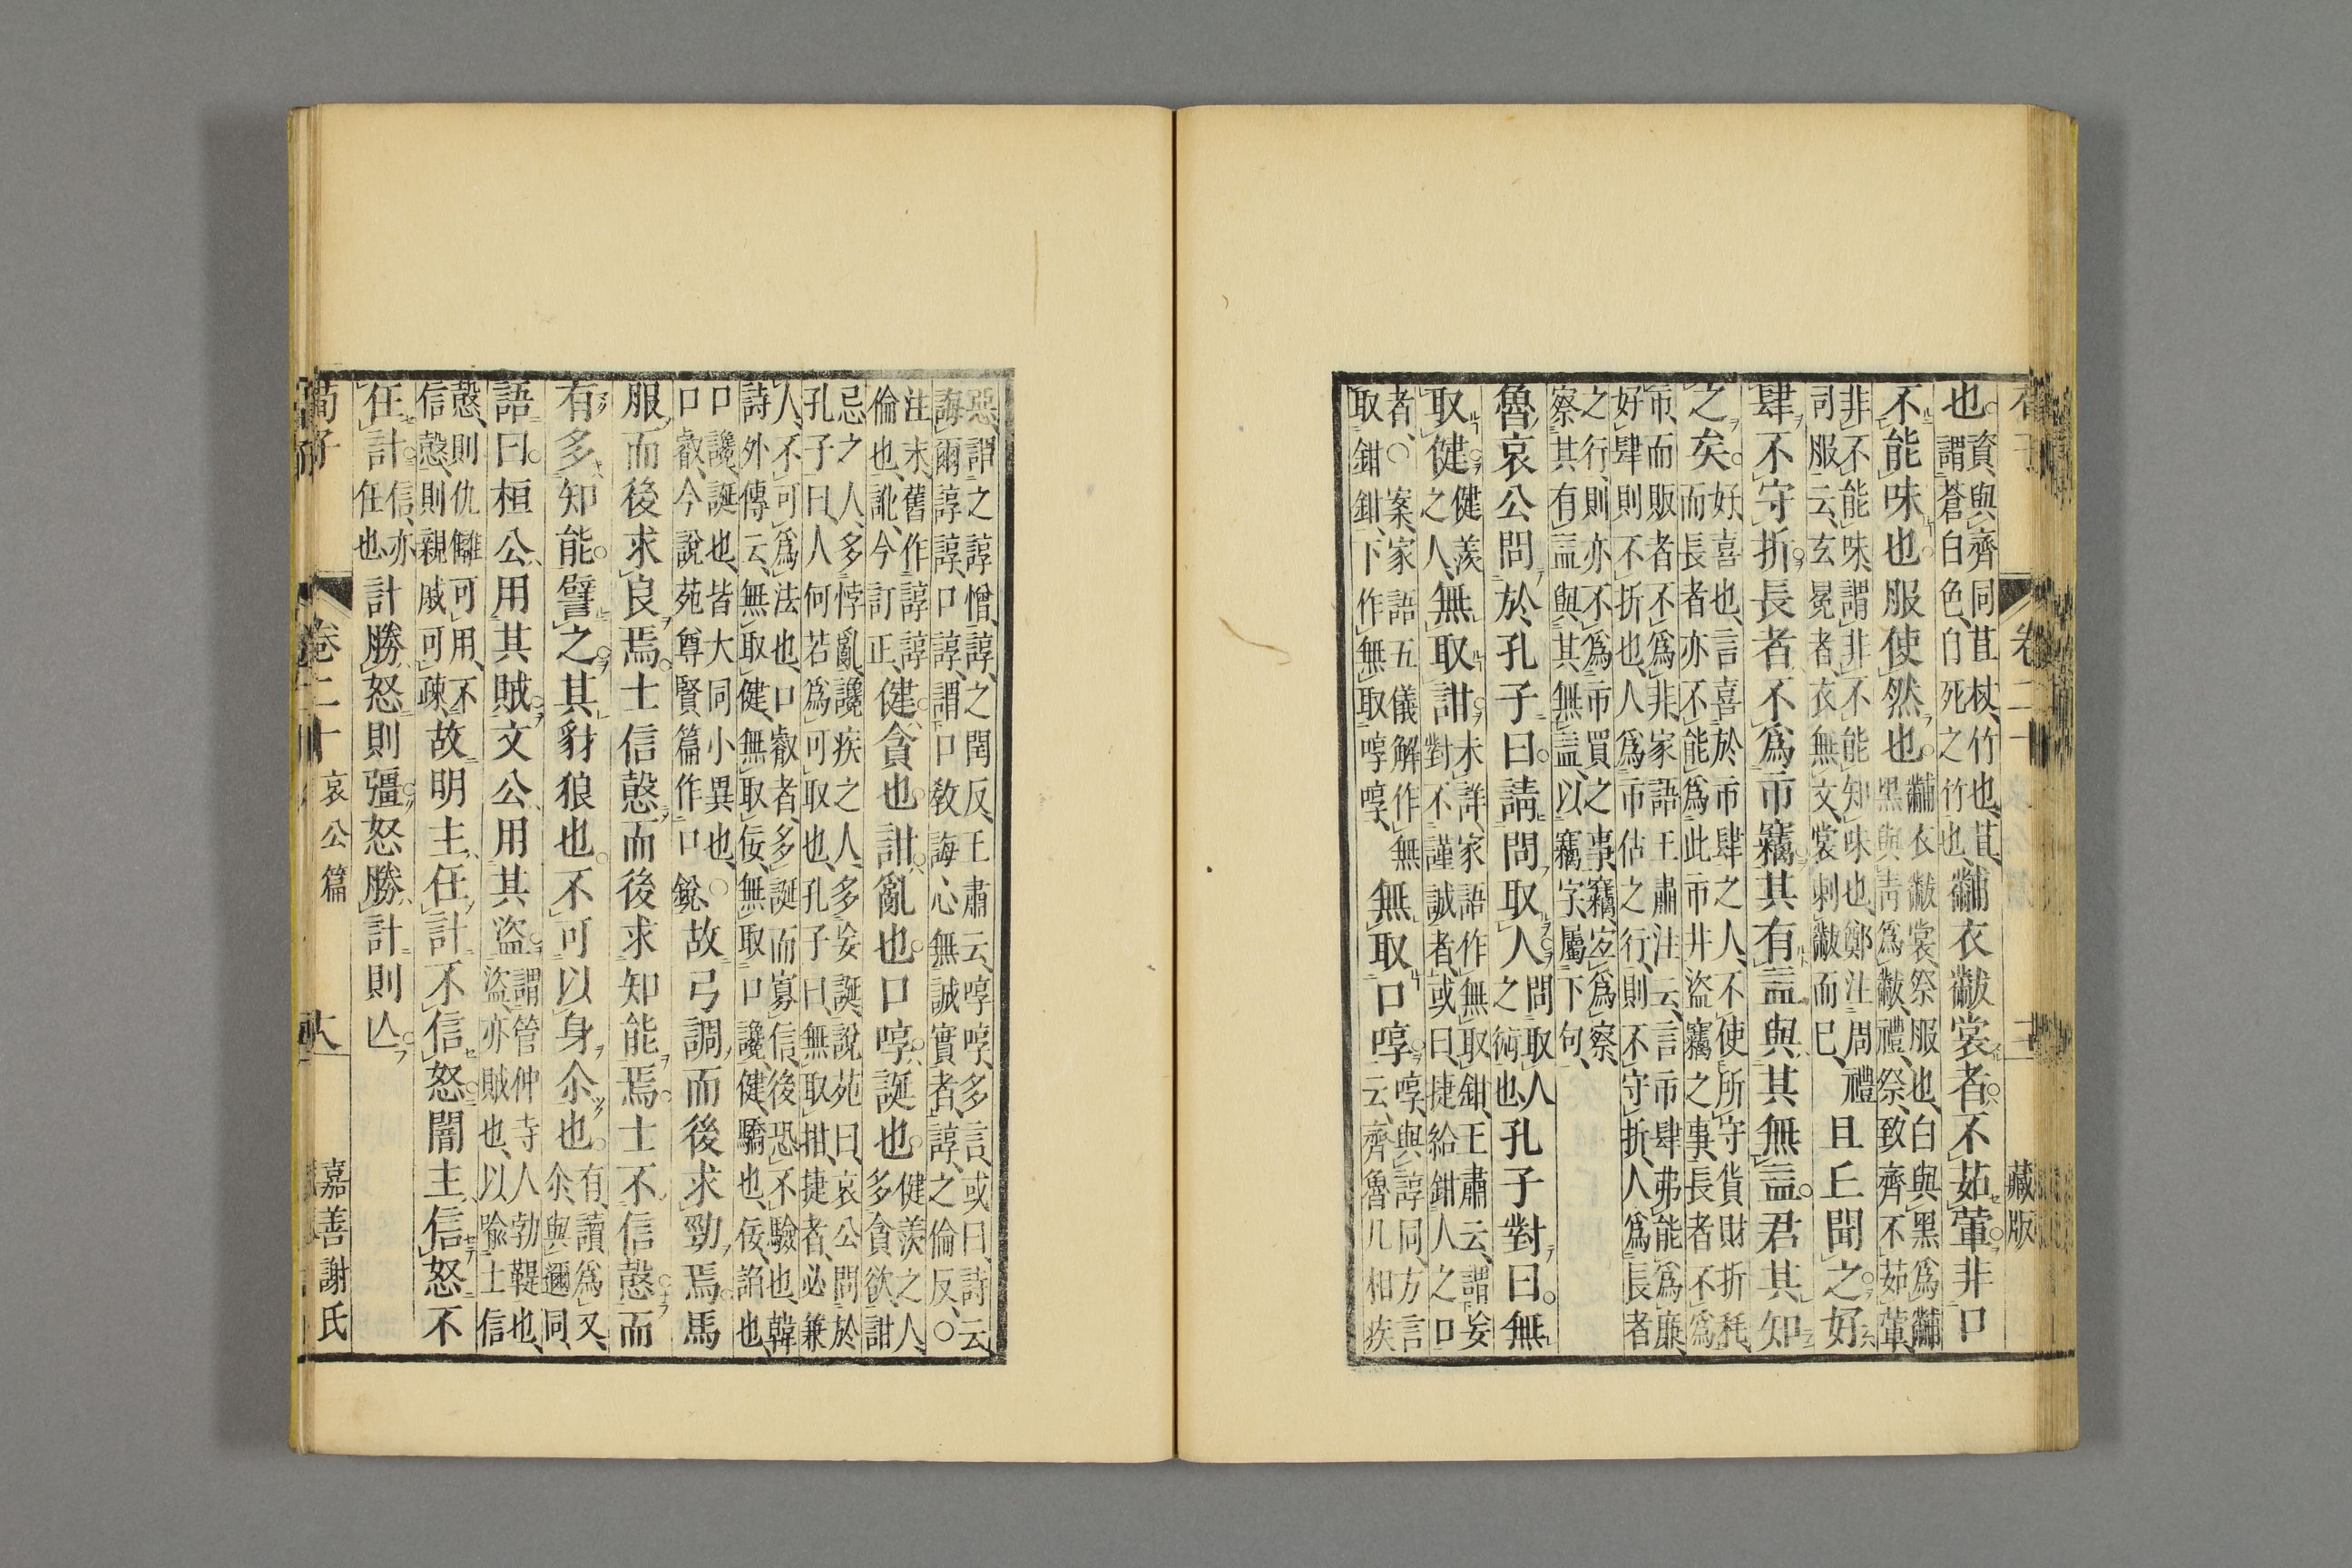 卷二十　藏版
也資與齊同苴杖竹也苴謂蒼白色自死之竹也黼衣黻裳者不茹葷非口
不能味也服使然也黼衣黻裳祭服也白與黑爲黼黑與靑爲黻禮祭致齊不茹葷
非不能味謂非不能知味也鄭注周禮司服云玄冕者衣無文裳刺黻而已且丘聞之好
肆不守折長者不爲市竊其有益與其無益君其知
之矣好喜也言喜於市肆之人不使所守貨財折耗而長者亦不能爲此市井盜竊之事長者不爲
市而販者不爲非家語王肅注云言市肆弗能爲廉好肆則不折也人爲市估之行則不守折人爲長者
之行則亦不爲市買之事竊宜爲察察其有益與其無益以竊字屬下句
魯哀公問於孔子曰請問取人問取人之術也孔子對曰無
取健健羨之人無取詌未詳家語作無取鉗王肅云謂妄對不謹誠者或曰捷給鉗人之口
者○案家語五儀解作無取鉗鉗下作無取啍啍無取口啍啍與諄同方言云齊魯凡相疾
惡謂之諄憎諄之閏反王肅云啍啍多言或曰詩云誨爾諄諄口諄謂口敎誨心無誠實者諄之倫反○
注末舊作諄諄倫也訛今訂正健貪也詌亂也口啍誕也健羨之人多貪欲詌
忌之人多悖亂讒疾之人多妄誕說苑曰哀公問於孔子曰人何若爲可取也孔子曰無取拑捷者必兼
人不可爲法也口叡者多誕而寡信後恐不驗也韓詩外傳云無取健無取佞無取口讒健驕也佞諂也
口讒誕也皆大同小異也○口叡今說苑尊賢篇作口銳故弓調而後求勁焉馬
服而後求良焉士信慤而後求知能焉士不信慤而
有多知能譬之其豺狼也不可以身尒也有讀爲又尒與邇同
語曰桓公用其賊文公用其盜謂管仲寺人勃鞮也盜亦賊也以喻士信
慤則仇讎可用不信慤則親戚可疎故明主任計不信怒闇主信怒不
任計信亦任也計勝怒則彊怒勝計則亾
荀子　卷二十　哀公篇　嘉善謝氏